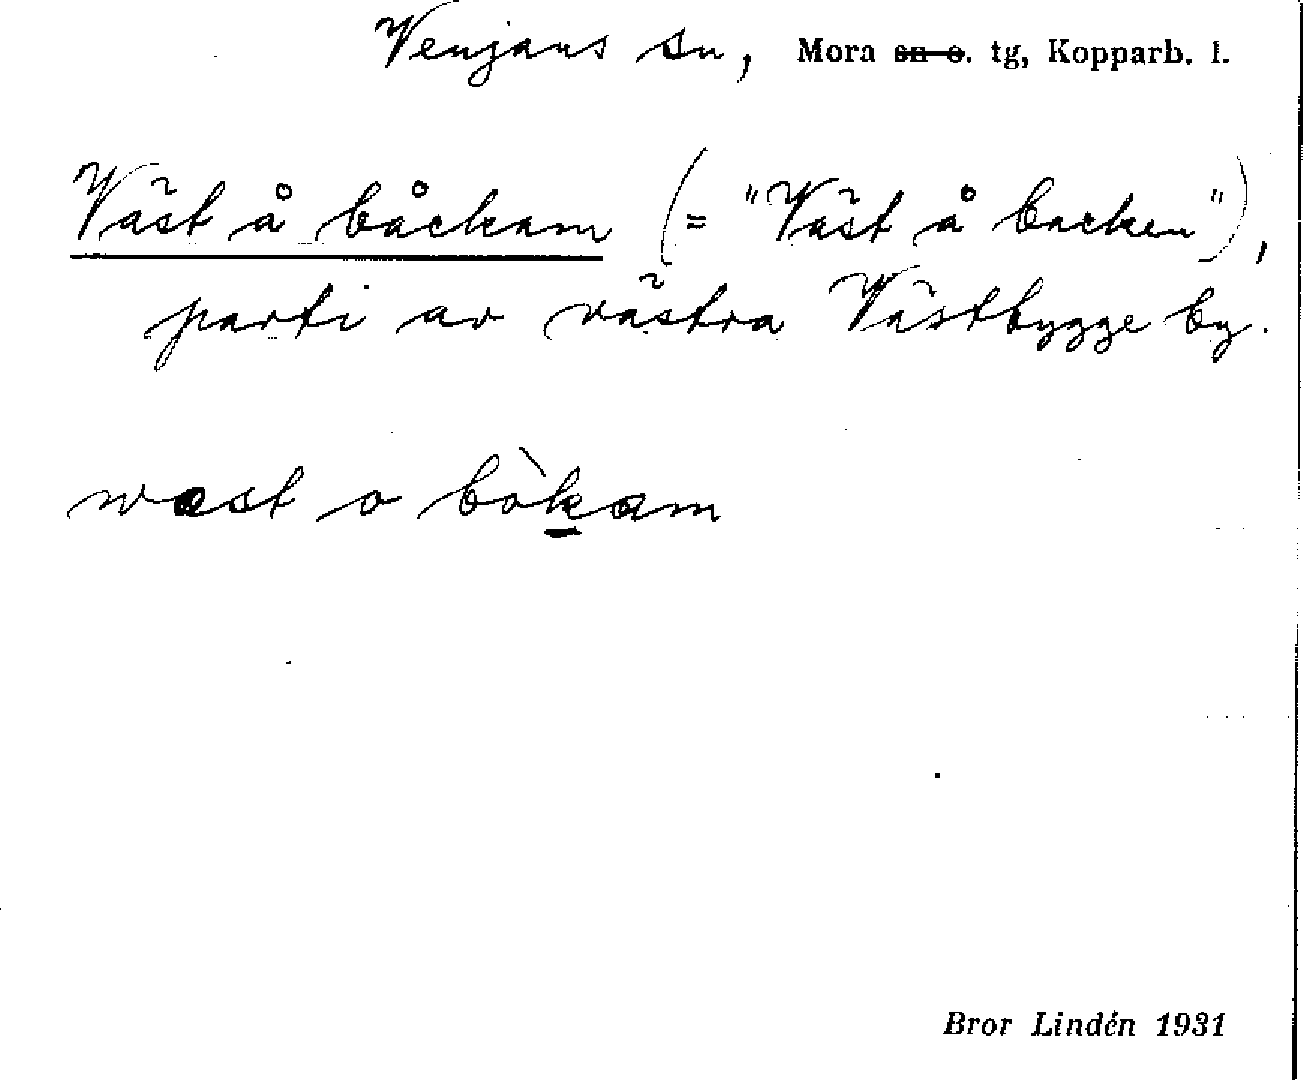 Venjans sn, Mora sn o. tg, Kopparb. l.
Väst å båckam (= "Väst å backen"),
parti av västra Västbygge by.
wæst o bòkam
Bror Lindén 1931